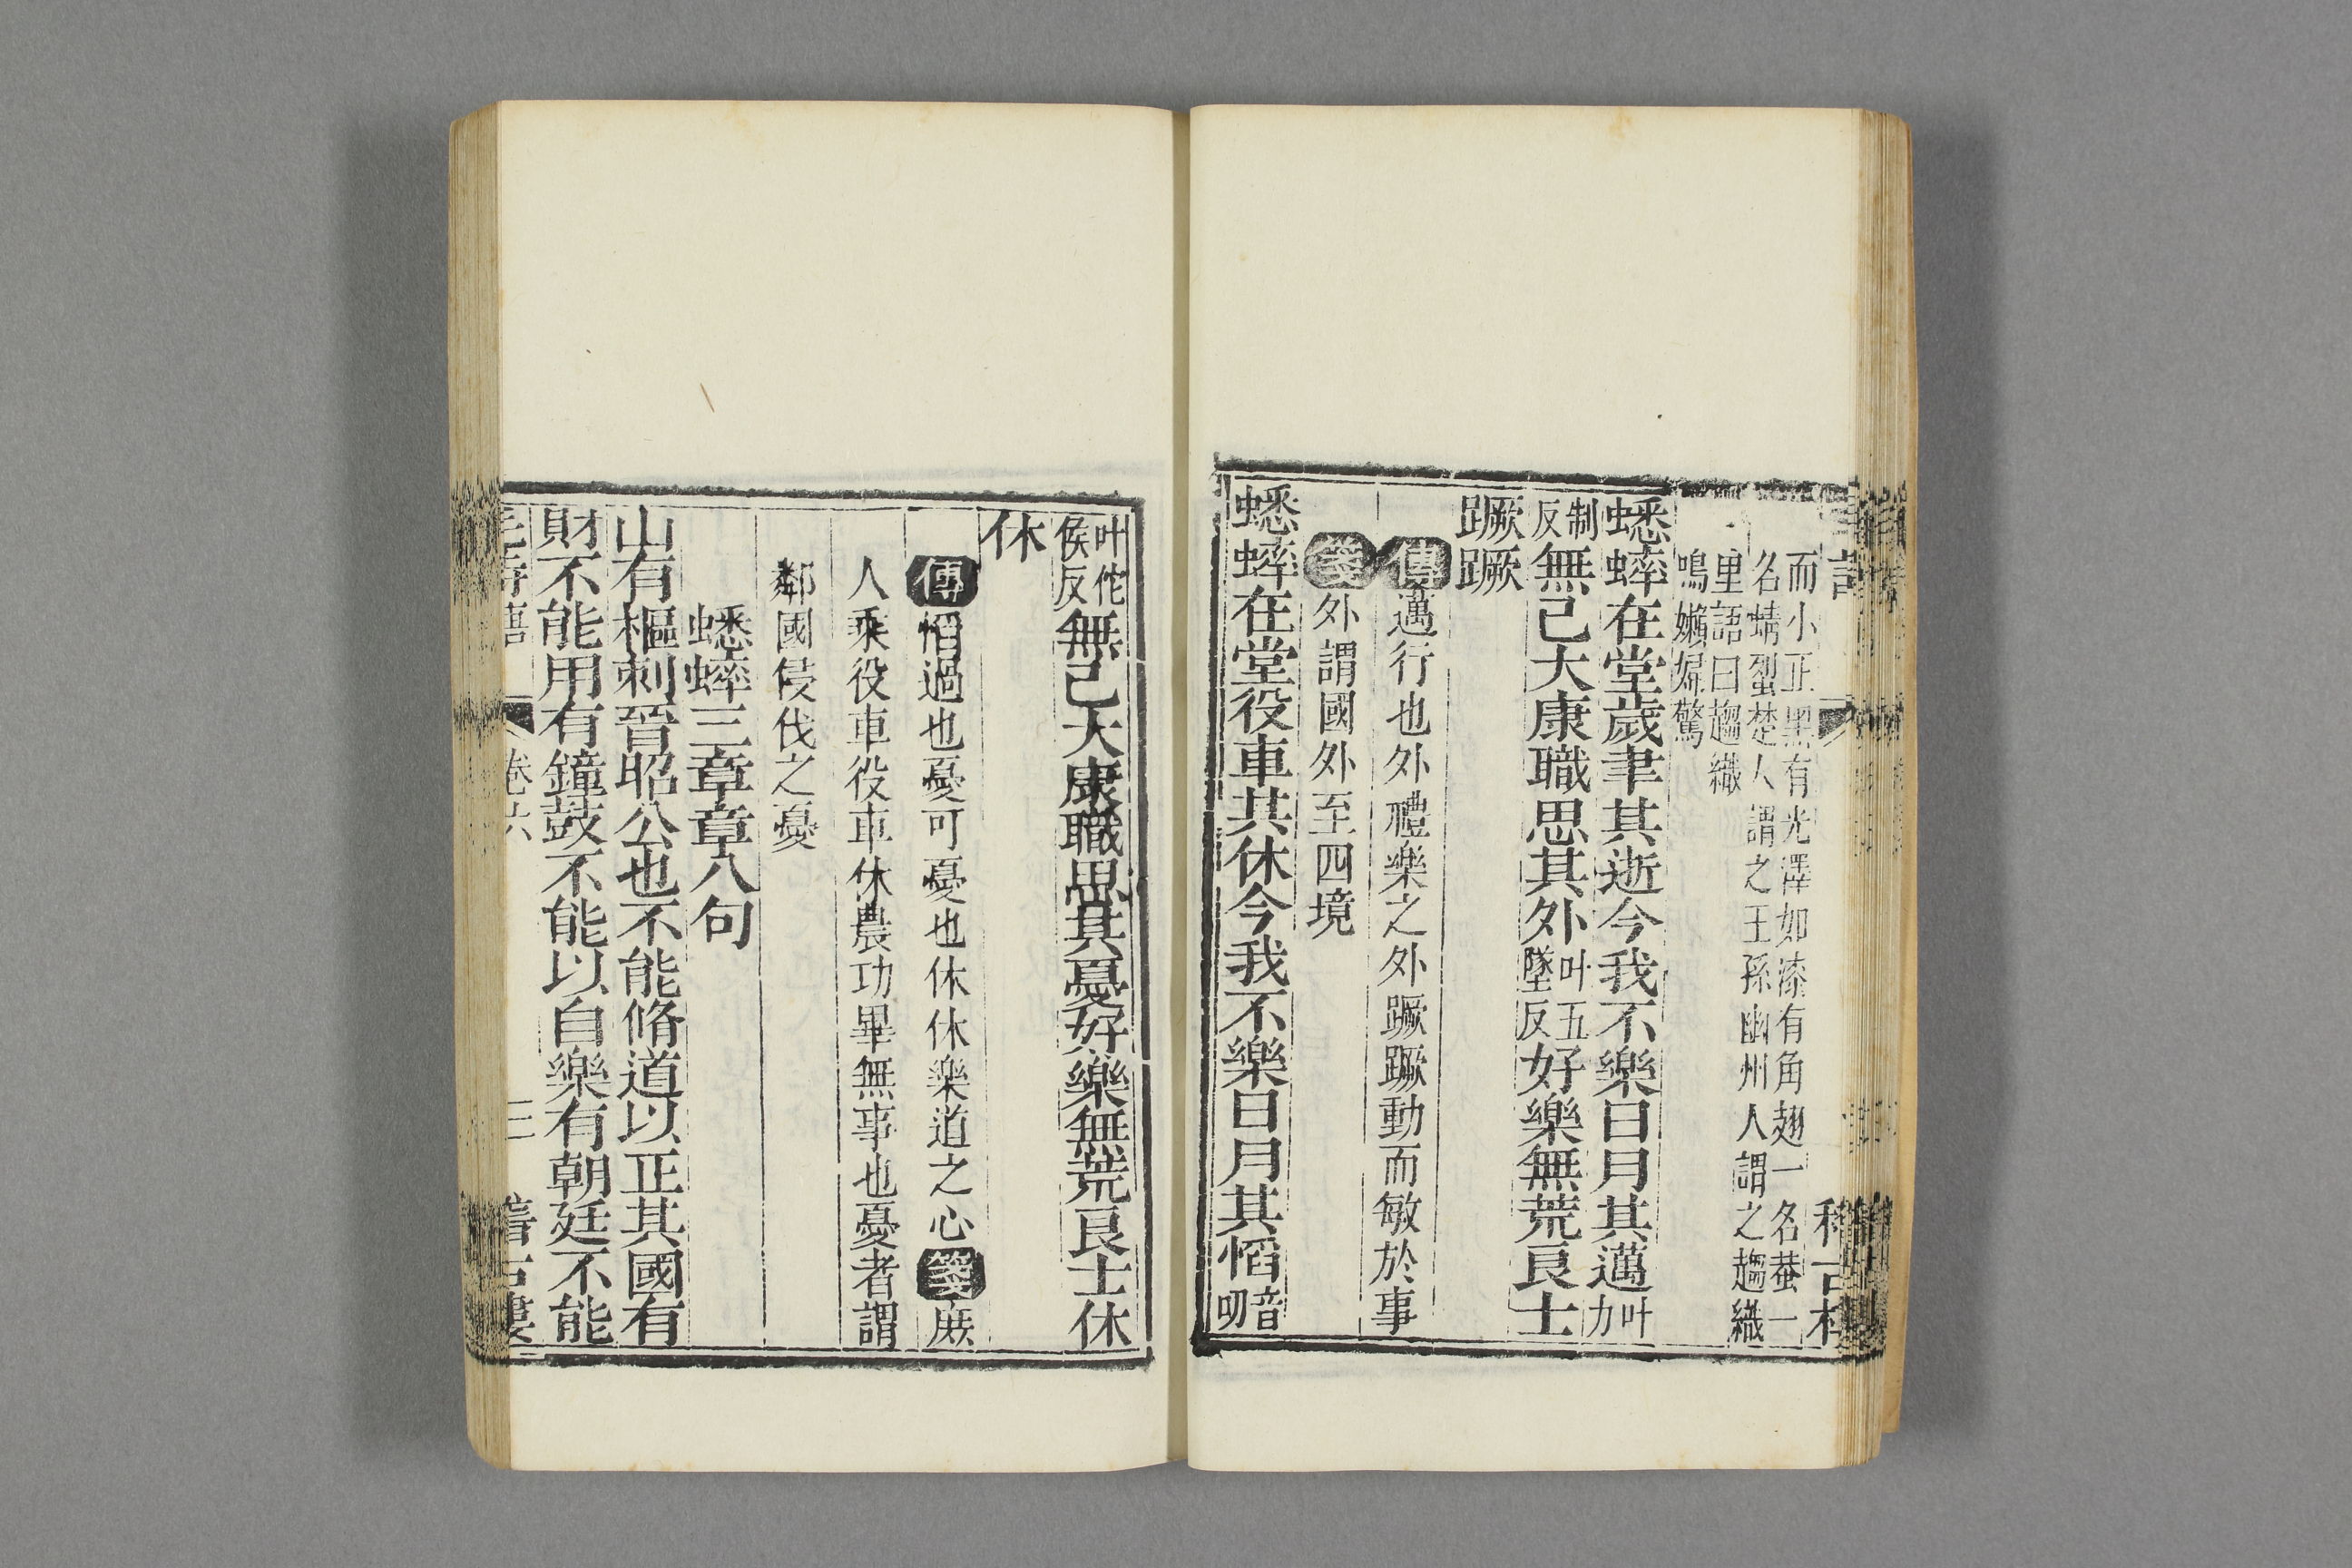 而小正黑有光澤如漆有角翅一名蛬一
名蜻蛚楚人謂之王孫幽州人謂之趨織
里語曰趨織
鳴嬾婦驚
蟋蟀在堂歲聿其逝今我不樂日月其邁叶力
制反無已大康職思其外叶五墜反好樂無荒良士
蹶蹶
傳邁行也外禮樂之外蹶蹶動而敏於事
箋外謂國外至四境
蟋蟀在堂役車其休今我不樂日月其慆音叨
叶佗侯反無已大康職思其憂好樂無荒良士休
休
傳慆過也憂可憂也休休樂道之心箋庶
人乘役車役車休農功畢無事也憂者謂
鄰國侵伐之憂
蟋蟀三章章八句
山有樞刺晉昭公也不能脩道以正其國有
財不能用有鐘鼓不能以自樂有朝廷不能
卷六